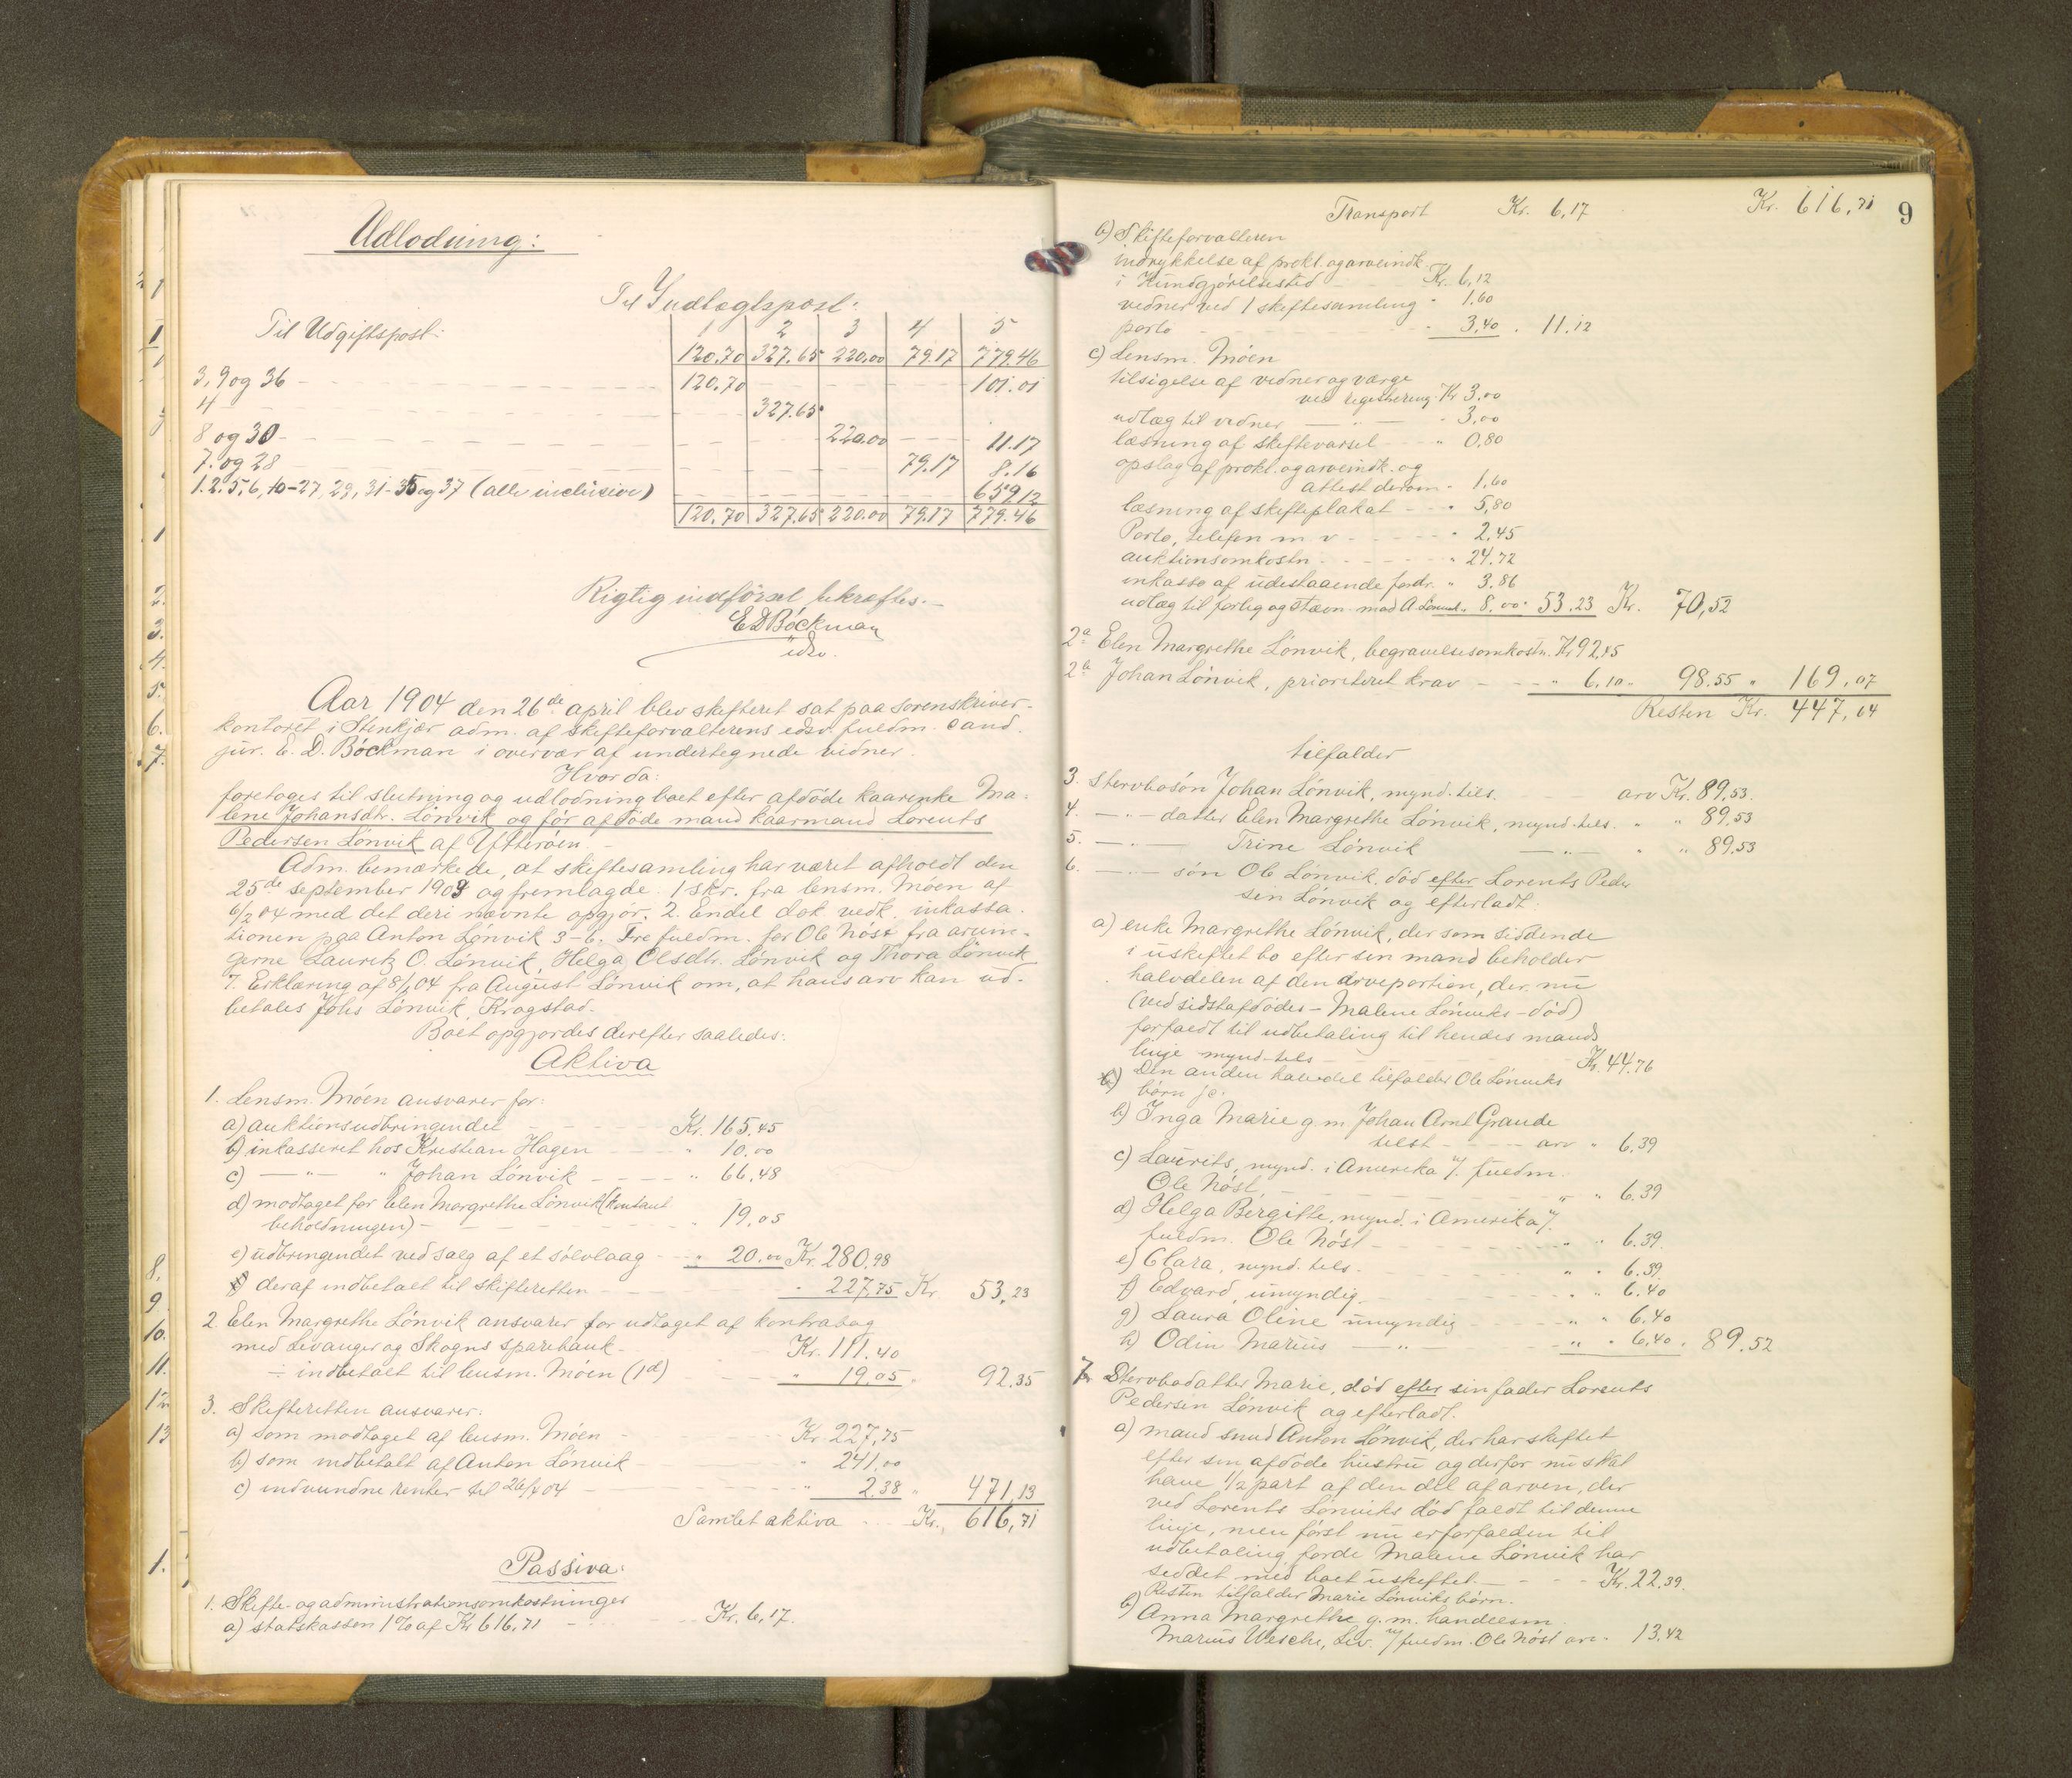 Udlodning:
Til Indtægtspost:
Til Udgiftspost:
1 2 3 4 5
120.70 327.65 220.00 79.17 779.46
3, 9 og 36 120.70 101.01
4 327.65
8 og 30 220.00 11.17
7. og 28 79.17 8.16
1. 2. 5, 6, 10-27, 29, 31-35 og 37 (alle inclusive) 659.12
120.70 327.65 220.00 79.17 779.46
Rigtig indførsel bekræftes.
E D Böckman
edsv.
Aar 1904 den 26de april blev skifteret sat paa sorenskriver-
kontoret i Stenkjær adm. af skifteforvalterens edsv. fuldm. cand.
jur. E. D. Böckman i overvær af undertegnede vidner.
Hvor da:
foretoges til slutning og udlodning boet efter afdøde kaarenke Ma-
lene Johansdtr. Lönvik og før afdøde mand kaarmand Lorents
Pedersen Lönvik af Ytterøen.
Adm. bemærkede, at skiftesamling har været afholdt den
25de september 1903 og fremlagde 1 skr. fra lensm. Möen af
6/2 04 med det deri nævnte opgjør. 2. Endel dok vedk. inkassa-
tionen paa Anton Lönvik 3-6. Fre fuldm. for Ole Nöst fra arvin-
gerne Lauritz O. Lönvik, Helga Olsdtr. Lönvik og Thora Lönvik
7. Erklæring af 8/1 04 fra August Lönvik om, at hans arv kan ud-
betales Johs Lönvik, Kragstad.
Boet opgjordes derefter saaledes:
Aktiva
1. Lensm. Möen ansvarer for:
a) auktionsudbringendet Kr. 165.45
b) inkasseret hos Kristian Hagen " 10.00
c) — " — " Johan Lönvik " 66,48
d) modtaget for Elen Margrethe Lönvik (kontant
beholdningen) " 19,05
e) udbringendet ved salg af et sölvlaag " 20.00 Kr. 280,98
f) deraf indbetalt til skifteretten " 227,75 Kr. 53,23
2. Elen Margrethe Lönvik ansvarer for udtaget af kontrabog
med Levanger og Skogns sparebank Kr. 111.40
÷ indbetalt til lensm. Möen (1d) " 19.05 " 92,35
3. Skifteretten ansvarer:
a) som modtaget af lensm. Möen Kr. 227,75
b) som indbetalt af Anton Lönvik " 241.00
c) indvundne renter til 26/4 04 " 2,38 " 471,13
Samlet aktiva Kr. 616,71
Passiva:
1. Skifte- og administrationsomkostninger
a) statskassen 1% af Kr 616,71 Kr. 6,17.
9
Transport Kr. 6,17 Kr. 616,71
b) Skifteforvalteren
indrykkelse af prokl. og arveindk.
i Kundgjörelsestid. Kr. 6,12
vidner ved 1 skiftesamling " 1.60
porto " 3,40 " 11.12
c) Lensm. Möen
tilsigelse af vidner og værge
ved registrering Kr 3,00
udlæg til vidner — " — " 3,00
læsning af skiftevarsel " 0,80
opslag af prokl. og arveindk. og
attest derom " 1,60
læsning af skifteplakat " 5,80
Porto, telefon m v " 2,45
auktionsomkostn. " 24.72
inkasso af udestaaende fordr. " 3.86
udlæg til forlig og stævn. mod A. Lönvik " 8.00 " 53.23 Kr. 70,52
2a Elen Margrethe Lönvik, begravelsesomkostn. Kr 92,45
2b Johan Lönvik, prioriteret krav " 6.10 " 98.55 " 169,07
Resten Kr. 447,64
tilfalder
3. Stervbosön Johan Lönvik, mynd. tils. arv Kr. 89,53.
4. — " — datter Elen Margrethe Lönvik, mynd. tils. " " 89,53
5. — " — Trine Lönvik — " — " " 89,53
6. — " — sön Ole Lönvik, död efter Lorents Peder
sen Lönvik og efterladt:
a) enke Margrethe Lönvik, der som siddende
i uskiftet bo efter sin mand beholder
halvdelen af den arveportion, der nu
(ved sidstafdödes - Malene Lönviks - död)
forfaldt til udbetaling til hendes mands
linje mynd. tils Kr. 44.76
Den anden halvdel tilfalder Ole Lönviks
børn je:
b) Inga Marie g. m. Johan Arnt Grande
tilst. arv " 6,39
c) Laurits, mynd. i Amerika v/ fuldm.
Ole Nöst, " " 6.39
d) Helga Bergitte, mynd. i Amerika v/
fuldm. Ole Nöst " " 6.39.
e) Clara, mynd. tils. " " 6.39
f) Edvard, umyndig " " 6.40
g) Laura Oline umyndig " " 6,40
h) Odin Marius — " — " " 6.40 " 89.52
7. Stervbodatter Marie, död efter sin fader Lorents
Pedersen Lönvik og efterladt.
a) mand smed Anton Lönvik, der har skiftet
efter sin afdöde hustru og derfor nu skal
have 1/2 part af den del af arven, der
ved Lorents Lönviks död faldt til denne
linje, men först nu er forfalden til
udbetaling, fordi Malene Lönvik har
siddet med boet uskiftet. Kr. 22.39.
Resten tilfalder Marie Lönviks børn.
b) Anna Margrethe g. m. handelsm.
Marius Wesche, Lev. v/ fuldm. Ole Nöst arv " 13,42